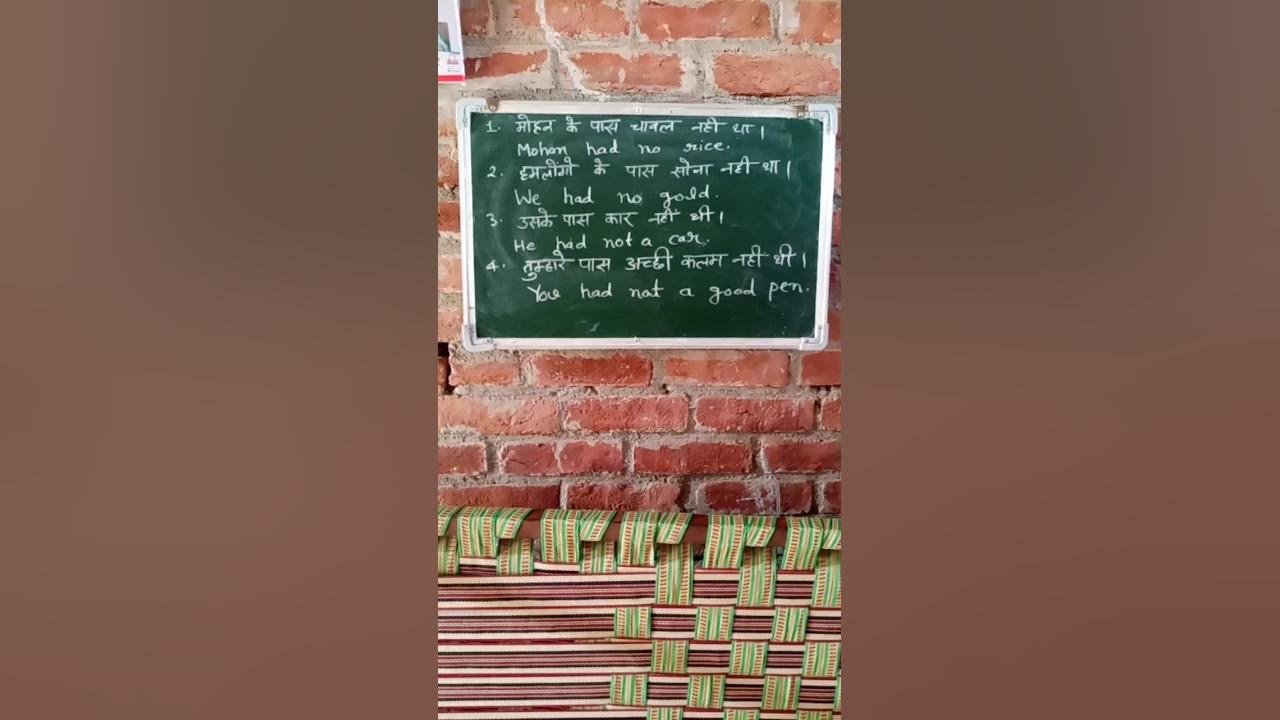 1. मोहन के पास चावल नहीं था।
Mohan had no rice.
2. हमलोंगो के पास सोना नहीं था।
We had no gold.
3. उसके पास कार नहीं थी।
He had not a car.
4. तुम्हारे पास अच्छी कलम नहीं थी।
You had not a good pen.